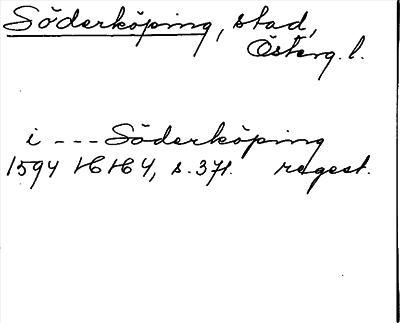 Söderköping, stad,
Österg. l.
i --- Söderköping
1594 HH 4, s. 371. regest.